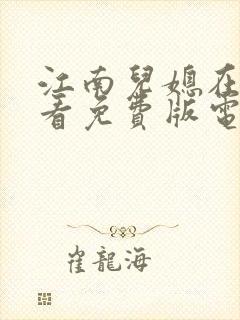 江南兒媳在
看免費版電
崔龍海